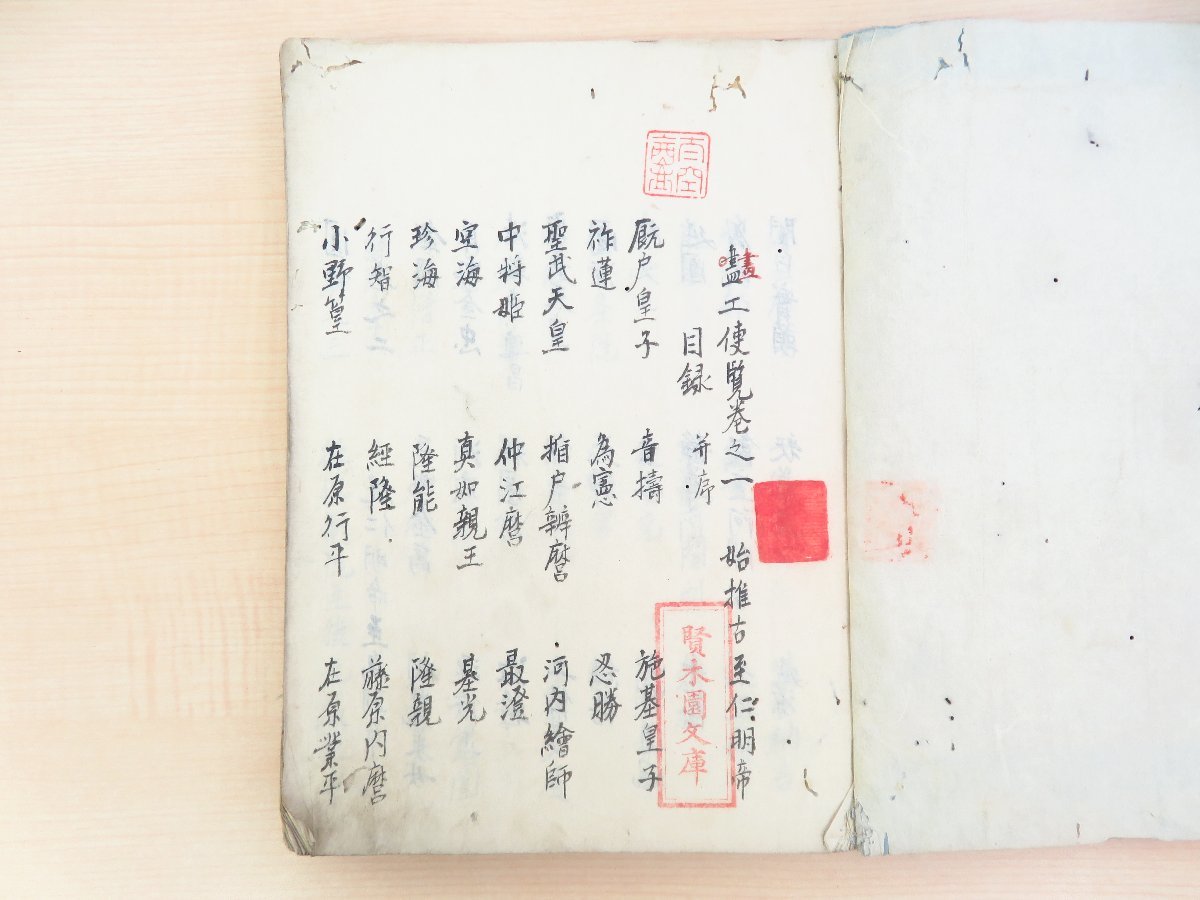 畫
盡工便覧巻之一 始推古至仁明帝
目録 并序
厩戸皇子 音擣 施基皇子
祚蓮 為憲 忍勝
聖武天皇 楯戸辨麿 河内繪師
中将姫 仲江麿 最澄
空海 真如親王 基光
珍海 隆能 隆親
行智 經隆 藤原内麿
小野篁 在原行平 在原業平
賢木園文庫